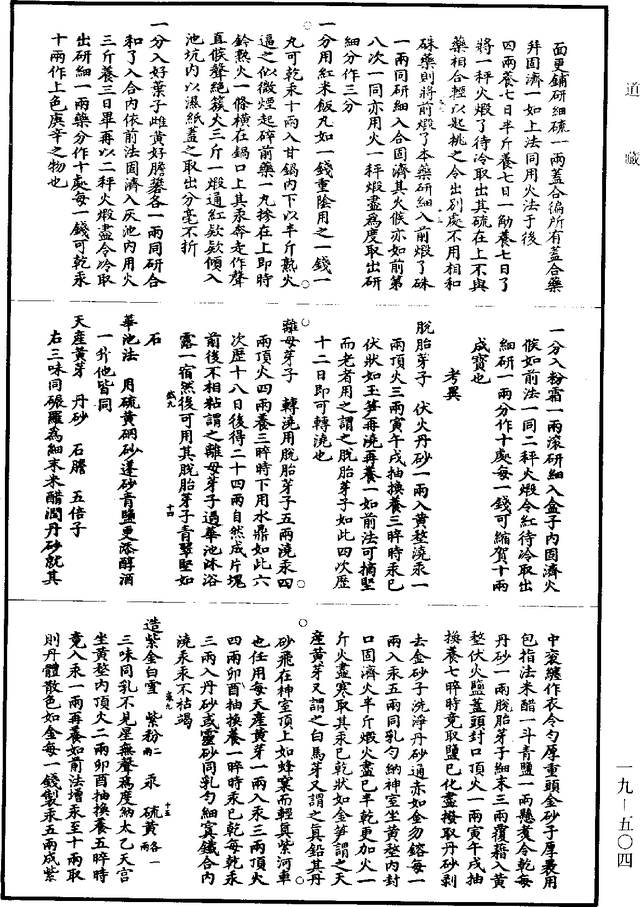 道藏
面更鋪研細硫一兩蓋合徧所有蓋合藥
幷固濟一如上法同用火法于後
四兩養七日半斤養七日一觔養七日了
將一秤火煅了待冷取出其硫在上不與
藥相合輕以匙挑之令出別處不用相和
硃藥則將前煅了本藥研細入前煅了硃
一兩同研細入合固濟其火候亦如前第
八次一同亦用一秤煅盡爲度取出研
細分作三分
一分用紅米飯丸如一錢重陰用之一錢一
九可乾汞十兩入甘鍋內下以半斤熟火
逼之似微煙起碎前藥一丸摻在上即時
鈐熟火一條橫在鍋口上其汞奔走作聲
直候聲絕簇火三斤一煅通紅欻欻傾入
池坑內以濕紙蓋之取出分毫不折
一分入好葉子雌黃好膽礬各一兩同研合
和了入合內依前法固濟入灰池內用火
三斤養三日畢再以二秤火煅盡令冷取
出研細一兩藥分作十處每一錢可乾汞
十兩作上色庚辛之物也
一分入粉霜一兩滾研細入盒子內固濟火
候如前法一同二秤火煅令紅待冷取出
細研一兩分作十處每一錢可縮賀十兩
成寶也
考異
脫胎芽子 伏火丹砂一兩入黃墼澆汞一
兩頂火三兩寅午戌抽換養三晬時汞已
伏狀如玉笋再澆再養一如前法可摘堅
而老者用之謂之脫胎芽子如此四次歷
十二日即可轉澆也
離母芽子 轉澆用脫胎芽子五兩澆汞四
兩頂火四兩養三晬時下用水鼎如此六
次歷十八日後得二十四兩自然成片塊
前後不相粘謂之離母芽子過華池沐浴
露一宿然後可用其脫胎芽子青翠堅如
石
華池法 用硫黃硇砂蓬砂青鹽更添醇酒
一升他皆同
天產黃芽 丹砂 石膽 五倍子
右三味同碾羅爲細末米醋潤丹砂就其
中衮纏作衣令勻厚重頭金砂子厚裹用
包指法米醋一斗青鹽一兩懸煮令乾每
丹砂一兩脫胎芽子細末三兩覆藉入黃
墼伏火鹽蓋頭封口頂火一兩寅午戌抽
換養七晬時竟取鹽已化盡撥取丹砂剝
去金砂子洗淨丹砂通赤如金勿鎔每一
兩入汞五兩同乳勻納神室坐黃墼內封
口固濟火半斤煅火盡已半乾更加火一
斤火盡寒取其汞已乾狀如金笋謂之天
產黃芽又謂之白馬芽又謂之真鉛其丹
砂飛在神室頂上如蜂窠而輕真紫河車
也任用每天產黃芽一兩入汞三兩頂火
四兩卯酉抽換養一晬時汞已乾每乾汞
三兩入丹砂或靈砂同乳勻細寘鐵合內
澆汞汞不枯竭
造紫金白雪 紫粉二兩 汞 硫黃各一兩
三味同乳不見星無聲爲度納太乙天宮
坐黃墼內頂火二兩卯酉抽換養五晬時
竟入汞一兩再養如前法增汞至十兩取
則丹體散色如金每一錢製汞五兩成紫
一九—五〇四